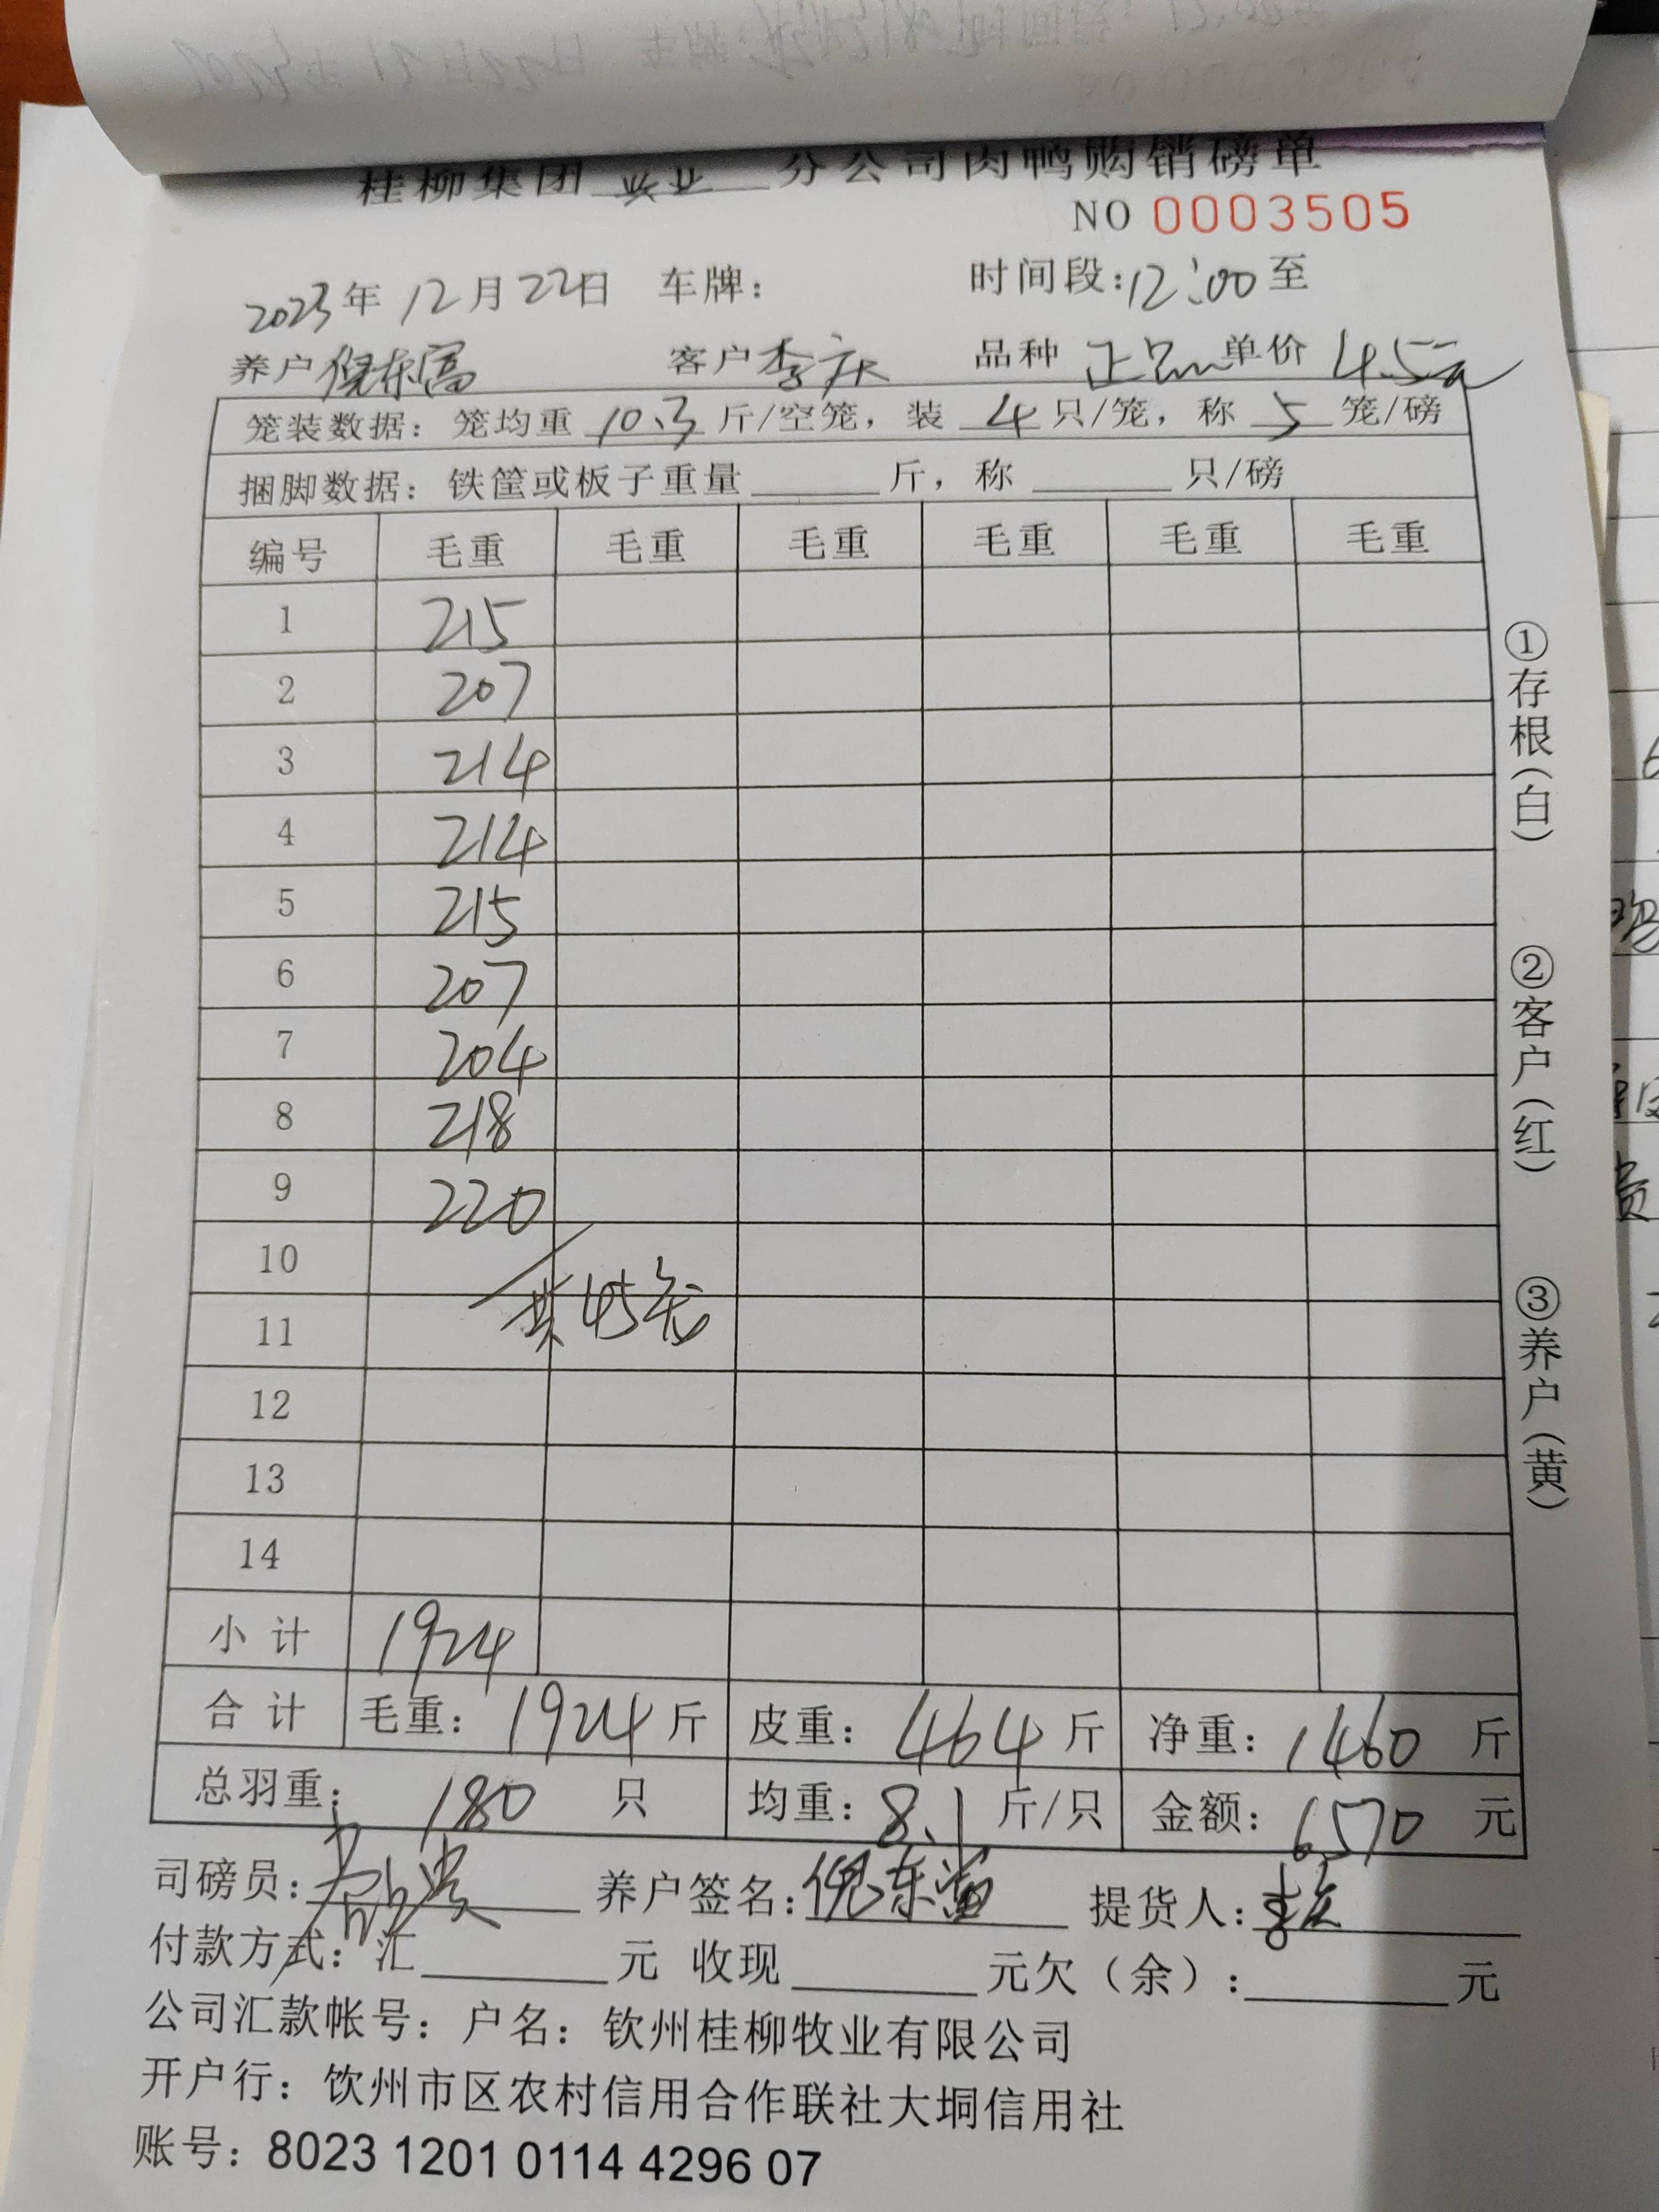 桂柳集团 兴业 分公司肉鸭购销磅单
NO 0003505
2023年 12月 22日 车牌： 时间段：12:00至
养户 倪东富 客户 李庆 品种 正品 单价 4.5元
笼装数据：笼均重 10.3 斤/空笼，装 4 只/笼，称 5 笼/磅
捆脚数据：铁筐或板子重量 斤，称 只/磅
编号 毛重 毛重 毛重 毛重 毛重 毛重
1 215
2 207
3 214
4 214
5 215
6 207
7 204
8 218
9 220
10
11 共45笼
12
13
14
小计 1924
合计 毛重：1924斤 皮重：464斤 净重：1460斤
总羽重：180 只 均重：8.1 斤/只 金额：6570 元
司磅员： 养户签名：倪东富 提货人：李庆
付款方式：汇 元 收现 元欠（余）： 元
公司汇款帐号：户名：钦州桂柳牧业有限公司
开户行：饮州市区农村信用合作联社大垌信用社
账号：8023 1201 0114 4296 07
①存根(白)
②客户(红)
③养户(黄)